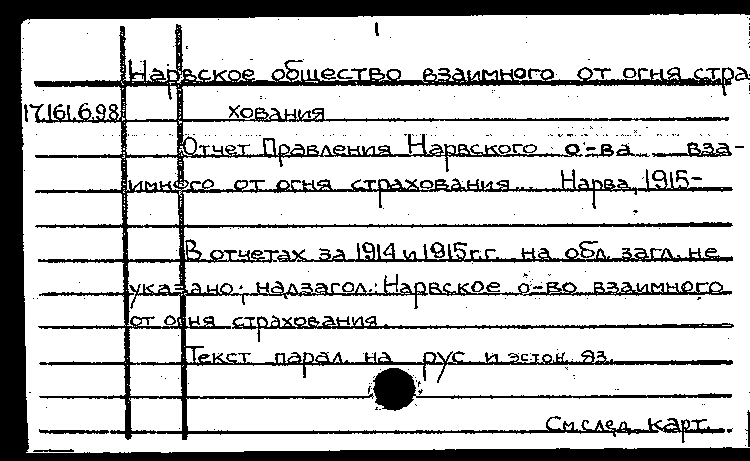 1
Нарвское общество взаимного от огня стра
17.161.6.98 хования
Отчет Правления Нарвского о-ва вза-
имного от огня страхования... Нарва, 1915-
В отчетах за 1914 и 1915 г.г. на обл. загл. не
указано; надзагол.: Нарвское о-во взаимного
от огня страхования.
Текст парал. на рус и эстон. яз.
См. след. карт.